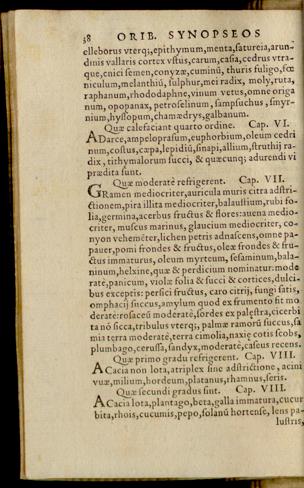 38 ORIB. SYNOPSEOS
elleborus vterqꝫ, epithymum, menta, satureia, arun-
dinis vallaris cortex vstus, carum, casia, cedrus vtra-
que, cnici semen, conyza, cuminū, thuris fuligo, fœ
niculum, melanthiū, sulphur, mei radix, moly, ruta,
raphanum, rhododaphne, vinum vetus, omne origa
num, opopanax, petroselinum, sampsuchus, smyr-
nium, hyssopum, chamædrys, galbanum.
Quæ calefaciant quarto ordine. Cap. VI.
ADarce, ampeloprasum, euphorbium, oleum cedri
num, costus, cæpa, lepidiū, sinapi, allium, struthij ra-
dix, tithymalorum succi, & quæcunqꝫ adurendi vi
prædita sunt.
Quæ moderatè refrigerent. Cap. VII.
GRamen mediocriter, auricula muris citra adstri-
ctionem, pira illita mediocriter, balaustium, rubi fo-
lia, germina, acerbus fructus & flores: auena medio-
criter, muscus marinus, glaucium mediocriter, co-
nyon vehemēter, lichen petris adnascens, omne pa-
pauer, pomi frondes & fructus, oleæ frondes & fru-
ctus immaturus, oleum myrteum, sesaminum, bala-
ninum, helxine, quæ & perdicium nominatur: mode
ratè, panicum, violæ folia & succi & cortices, dulci-
bus exceptis: persici fructus, caro citrij, fungi satis,
omphacij succus, amylum quod ex frumento fit mo
deratè: rosaceū moderatè, sordes ex palęstra, cicerbi
ta nō sicca, tribulus vterqꝫ, palmæ ramorū succus, sa
mia terra moderatè, terra cimolia, naxię cotis scobs,
plumbago, cerussa, sandyx, moderatè, caseus recens.
Quæ primo gradu refrigerent. Cap. VIII.
ACacia non lota, atriplex sine adstrictione, acini
vuæ, milium, hordeum, platanus, rhamnus, seris.
Quæ secundi gradus sint. Cap. VIIII.
ACacia lota, plantago, beta, galla immatura, cucur
bita, rhois, cucumis, pepo, solanū hortense, lens pa-
lustris,